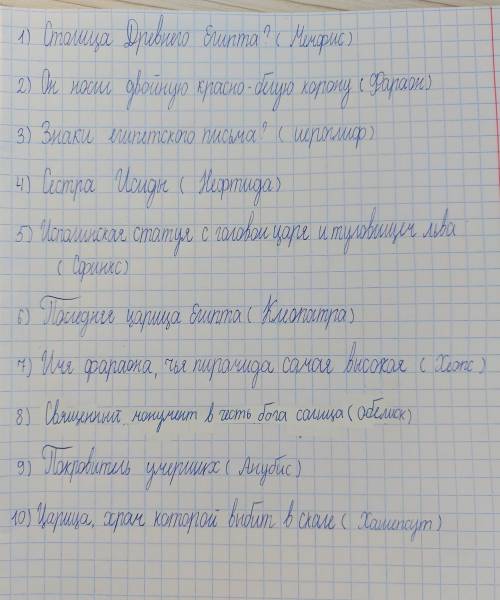 1) Столица Древнего Египта? (Мемфис)
2) Он носил двойную красно-белую корону (Фараон)
3) Знаки египетского письма? (иероглиф)
4) Сестра Исиды (Нефтида)
5) Исполинская статуя с головой царя и туловищем льва
(Сфинкс)
6) Последняя царица Египта (Клеопатра)
7) Имя фараона, чья пирамида самая высокая (Хеопс)
8) Священный монумент в честь бога солнца (обелиск)
9) Покровитель умерших (Анубис)
10) Царица, храм которой выбит в скале (Хатшепсут)